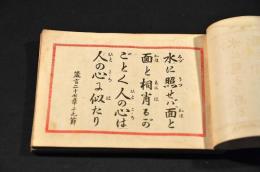 水に照せば面と
面と相肖るが
ごとく人の心は
人の心に似たり
箴言二十七章十九節